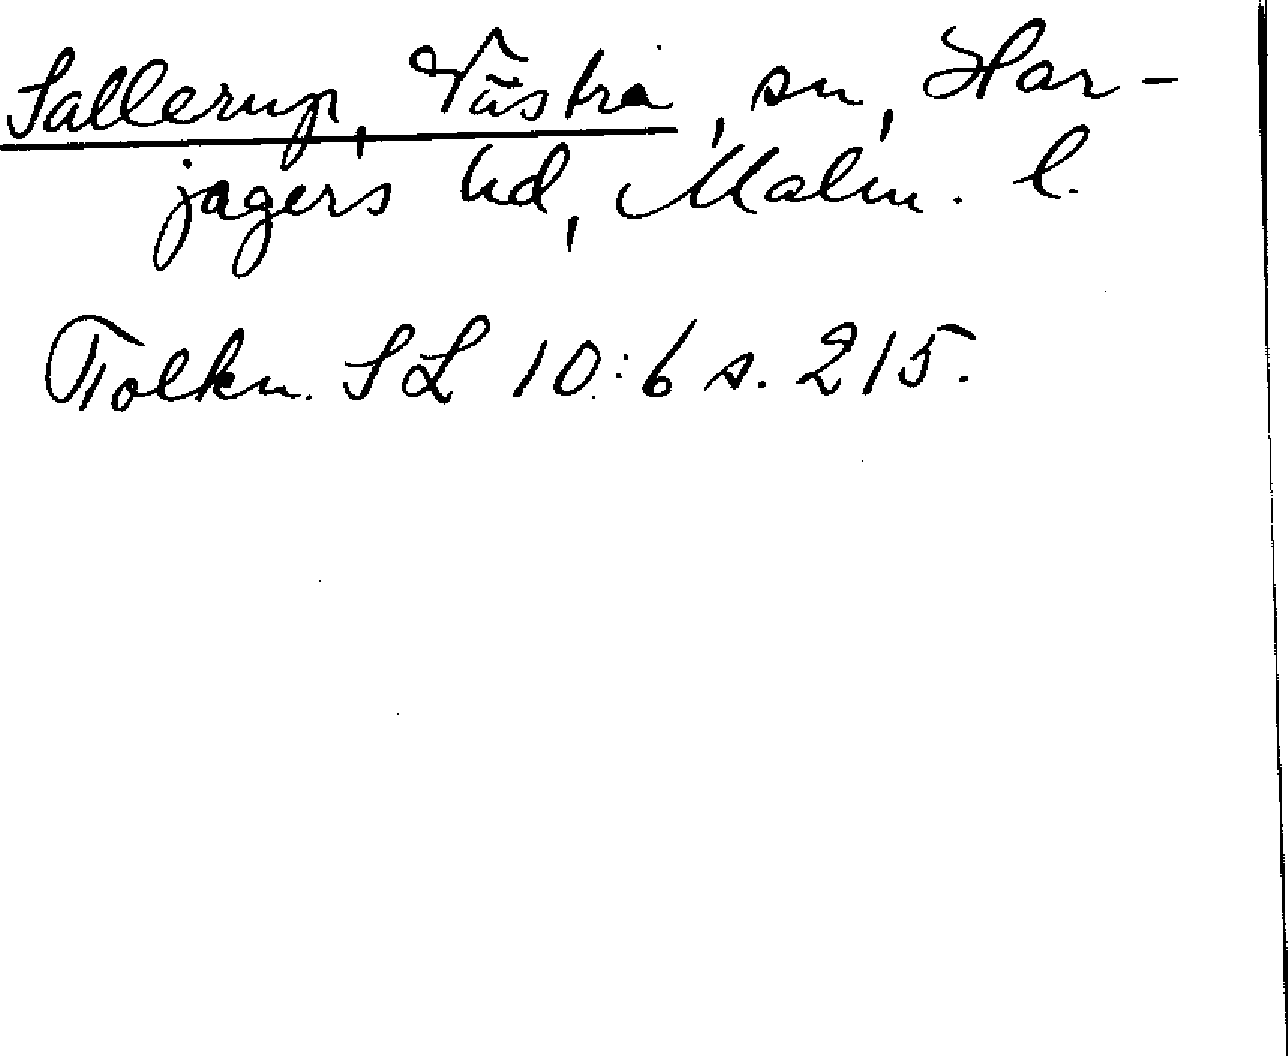 Sallerup, Västra, sn, Har-
jagers hd, Malm. l.
Tolkn. SL 10:6 s. 215.